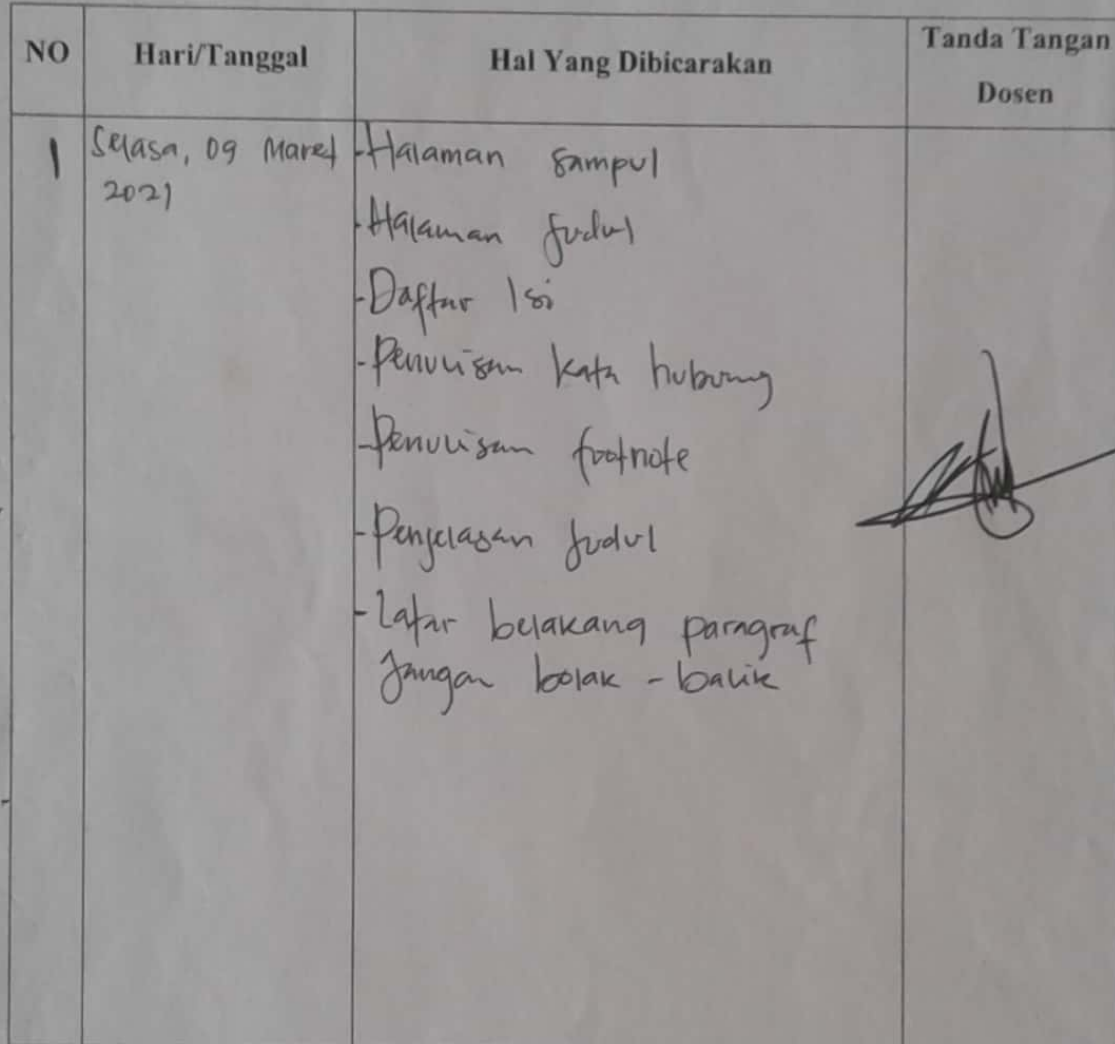 NO Hari/Tanggal Hal Yang Dibicarakan Tanda Tangan
Dosen
1 Selasa, 09 Maret -Halaman sampul
2021
-Halaman Judul
-Daftar Isi
-Penulisan kata hubung
-Penulisan footnote
-Penjelasan Judul
-Latar belakang paragraf
Jangan bolak - balik